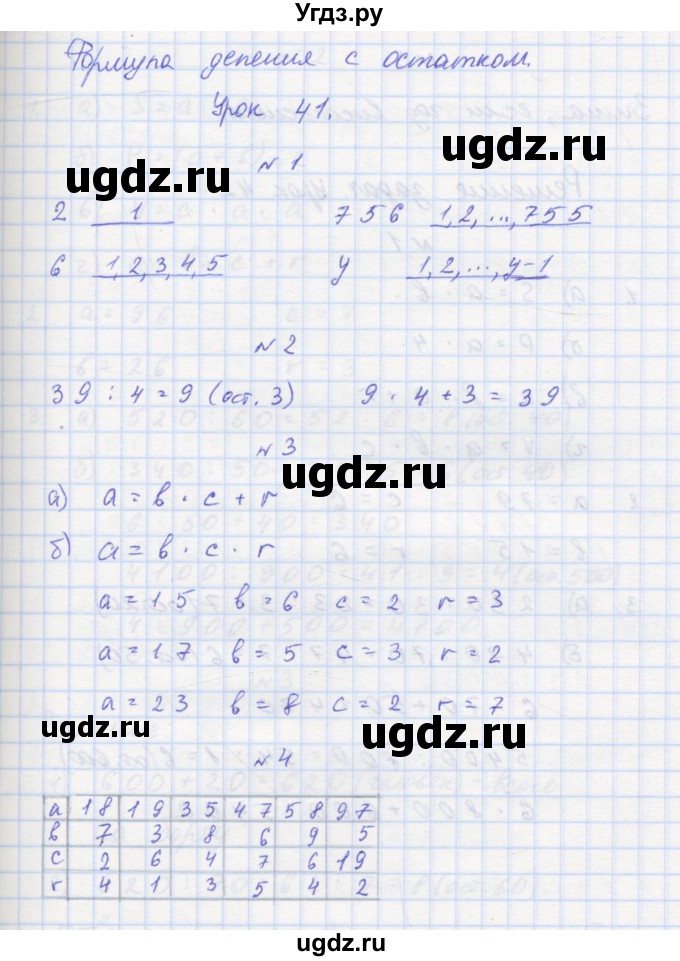 Угдз.ру
Формула деления с остатком.
Урок 41.
ugdz.ru ugdz.ru
№ 1
2 1 756 1,2,...,755
6 1,2,3,4,5 у 1,2,...,y-1
№ 2
39 : 4 = 9 (ост. 3) 9 · 4 + 3 = 39
№ 3
ugdz.ru
а) a = b · c + r
б) a = b · c · r
ugdz.ru
a = 15 b = 6 c = 2 r = 3
a = 17 b = 5 c = 3 r = 2
a = 23 b = 8 c = 2 r = 7
ugdz.ru ugdz.ru
№ 4
a 18 19 35 47 58 97
b 7 3 8 6 9 5
c 2 6 4 7 6 19
r 4 1 3 5 4 2
ugdz.ru
ugdz.ru